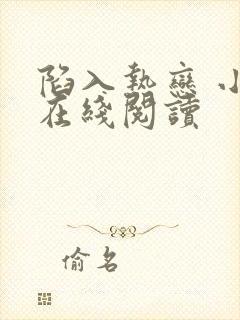 陷入熱戀 小
在綫閱讀
偷名